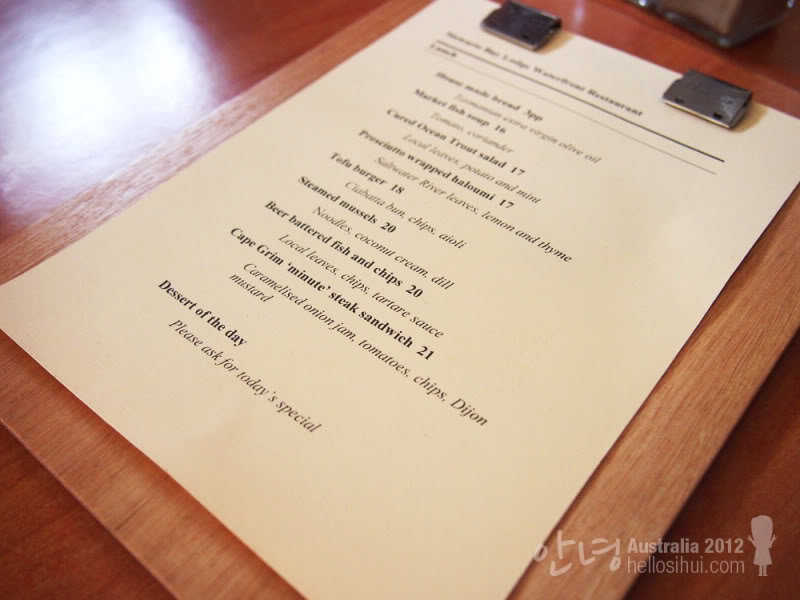 Stewarts Bay Lodge Waterfront Restaurant
Lunch
House made bread 3pp
Tasmanian extra virgin olive oil
Market fish soup 16
Tomato, coriander
Cured Ocean Trout salad 17
Local leaves, potato and mint
Prosciutto wrapped haloumi 17
Saltwater River leaves, lemon and thyme
Tofu burger 18
Ciabatta bun, chips, aioli
Steamed mussels 20
Noodles, coconut cream, dill
Beer battered fish and chips 20
Local leaves, chips, tartare sauce
Cape Grim 'minute' steak sandwich 21
Caramelised onion jam, tomatoes, chips, Dijon
mustard
Dessert of the day
Please ask for today's special
안녕 Australia 2012
hellosihui.com